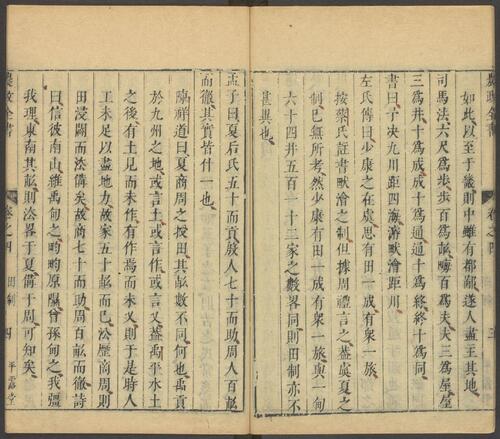 農政全書
卷之四
三
如此以至于畿則中雖有都鄙遂人盡主其地
司馬法六尺為步步百為畝畝百為夫夫三為屋屋
三為井井十為通通十為成成十為終終十為同
書曰予決九川距四海濬畎澮距川
左氏傳曰少康之在虞思有田一成有衆一旅
按蔡氏註書畎澮之制但據周禮言之蓋虞夏之
制已無所考然少康有田一成有衆一旅與一甸
六十四井五百一十三家之數畧同則田制亦不
甚異也
孟子曰夏后氏五十而貢殷人七十而助周人百畝
而徹其實皆什一也
陳祥道曰夏商周之授田其畝數不同何也禹貢
於九州之地或言土或言作或言乂蓋禹平水土
之後有土見而未作有作焉而未乂則于是時人
工未足以盡地力故家五十畝而已沿歷商周則
田浸闢而法備矣故商七十而助周百畝而徹詩
曰信彼南山維禹甸之畇畇原隰曾孫甸之我疆
我理東南其畝則法畧于夏備于周可知矣
農政全書
卷之四
田制
四
平露堂